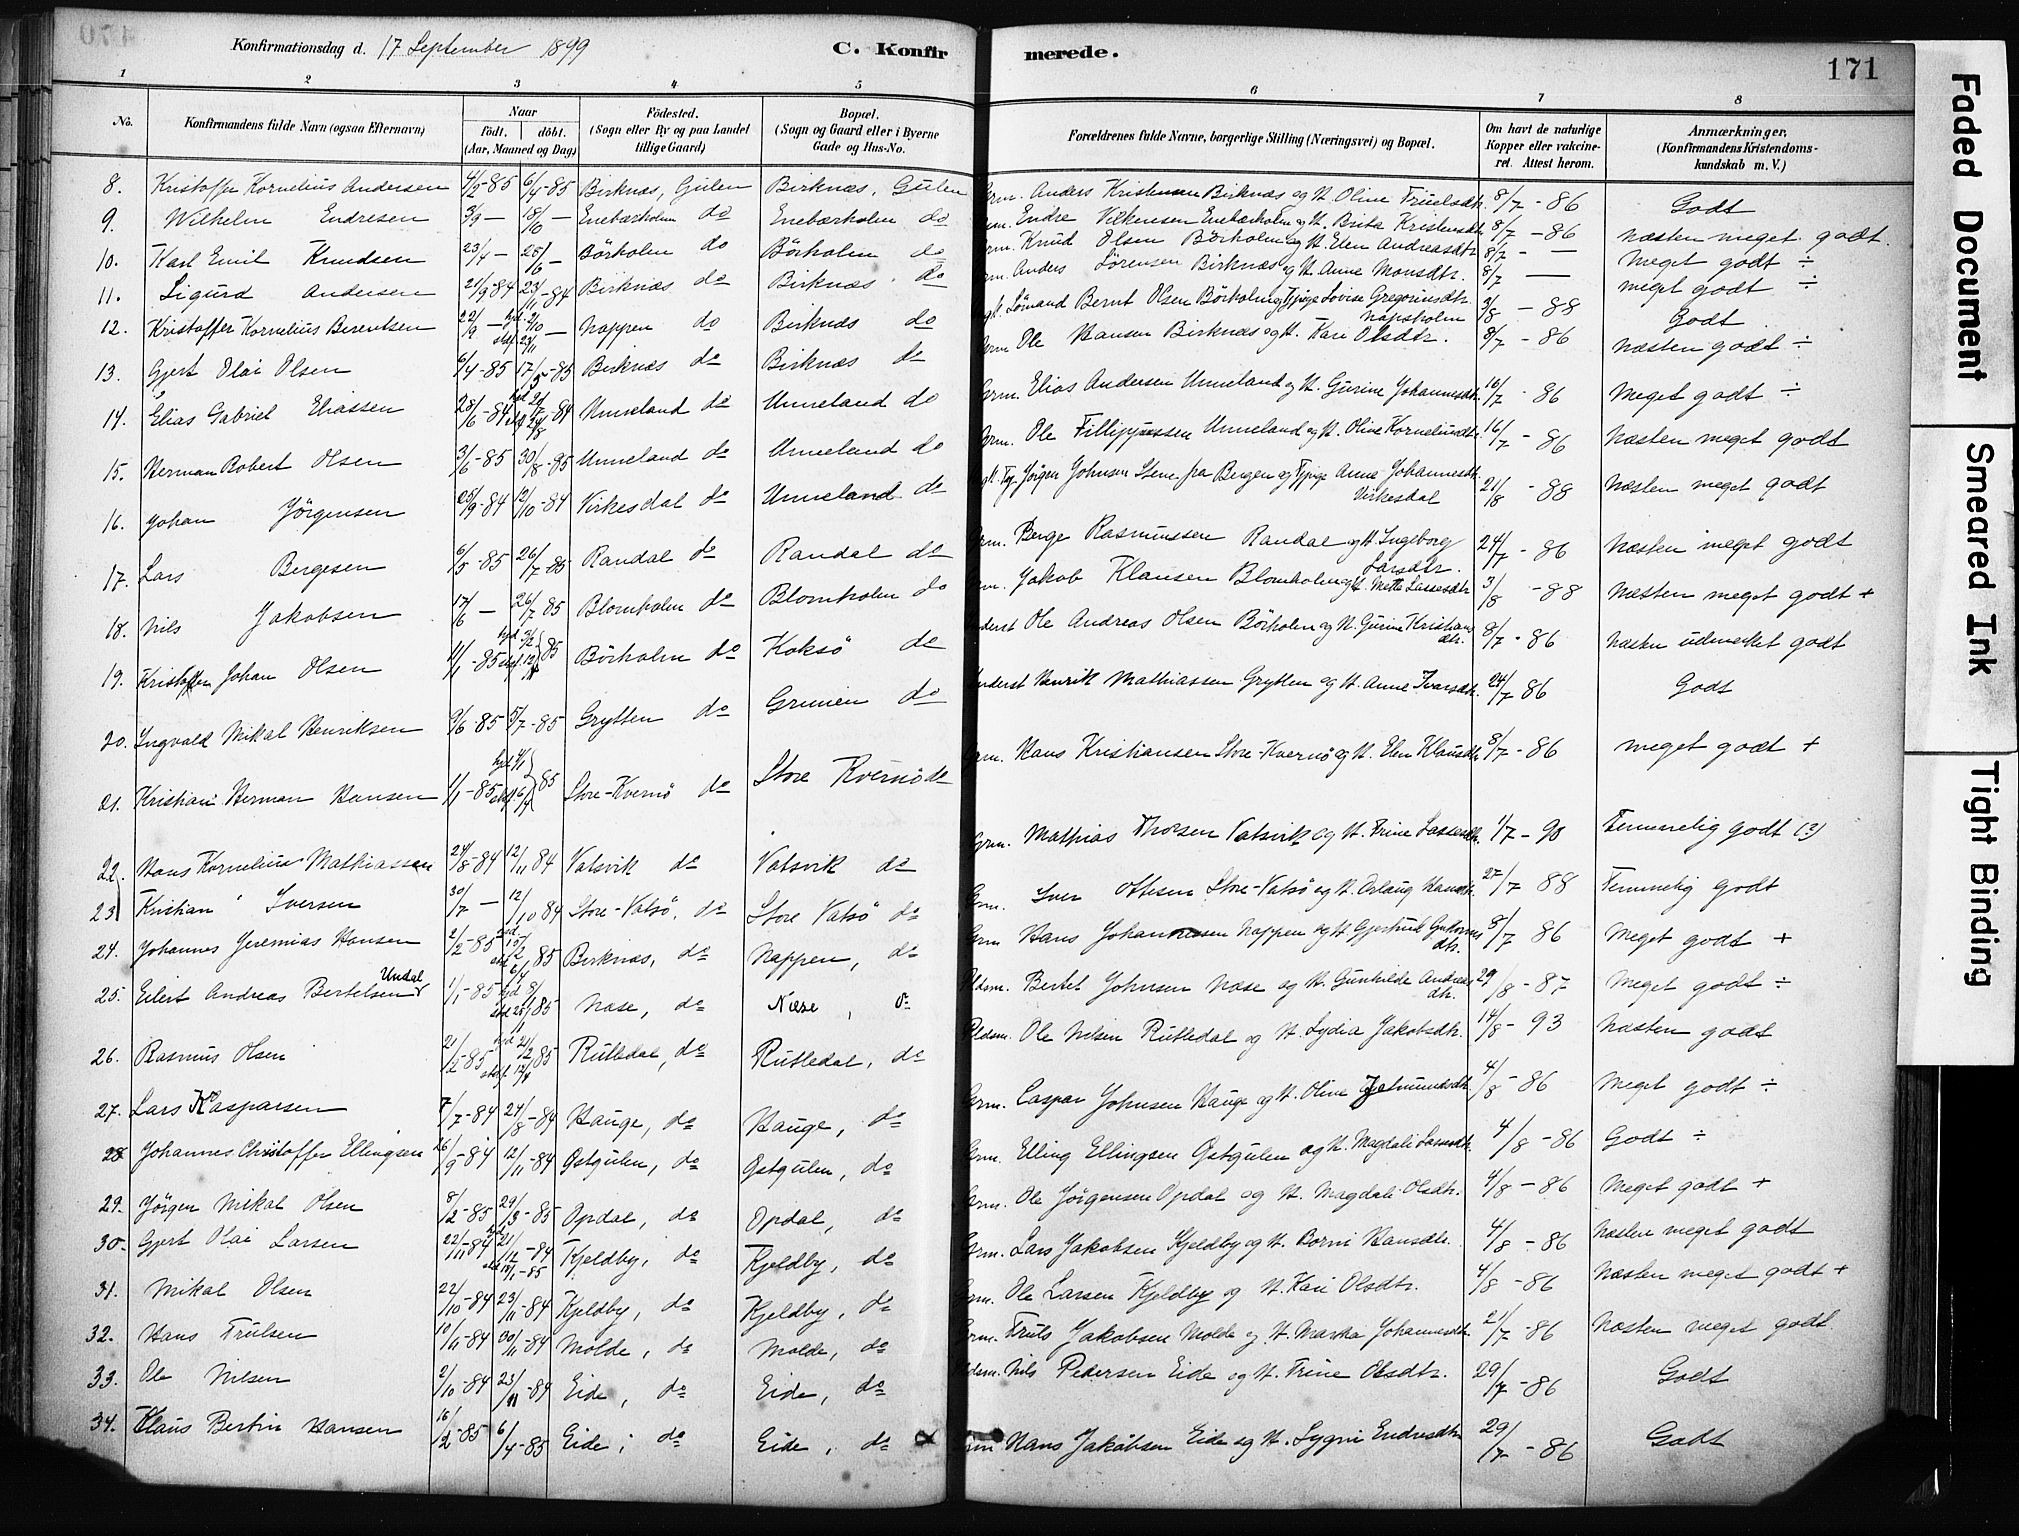 Konfirmationsdag d. 17 September 1899
C. Konfirmerede.
171
1 2 3 4 5 6 7 8
No.
Konfirmandens fulde Navn (ogsaa Efternavn)
Naar
födt. döbt.
(Aar, Maaned og Dag)
Födested.
(Sogn eller By og paa Landet
tillige Gaard)
Bopæl.
(Sogn og Gaard eller i Byerne
Gade og Hus-No.
Forældrenes fulde Navne, borgerlige Stilling (Næringsvei) og Bopæl.
Om havt de naturlige
Kopper eller vakcine-
ret. Attest herom.
Anmærkninger,
(Konfirmandens Kristendoms-
kundskab m. V.)
8. Kristoffer Kornelius Andersen 4/2-85 6/4-85 Birknæs, Gulen Birknæs, Gulen Grm. Anders Kristensen Birknæs og H. Oline Trulsdtr. 8/7 - 86 Godt
9. Wilhelm Endresen 3/9 — 18/10 — Enebærholm do Enebærholm do Endre Vilkensen Enebærholm og H. Brita Kristensdtr. 8/7 - 86 Næsten meget godt.
10. Karl Emil Knudsen 23/4 — 25/6 — Börholm do Börholm do Grm. Knud Olsen Börholm og H. Elen Andreasdtr. 8/7 - — Meget godt ÷
11. Sigurd Andersen 21/9-84 23/11-84 Birknæs do Birknæs do Anders Sörensen Birknæs og H. Anne Monsdtr. 8/7 — meget godt ÷
12. Kristoffer Kornelius Berentsen 22/9 — hjd. 2/10 — stdf. 23/11 Nappen do Birknæs do Bernt Olsen Börholm og Tjpige Lovise Gregoriusdtr. Napsholm 3/8 - 88 Godt
13. Gjert Olai Olsen 6/4-85 17/5-85 Birknæs do Birknæs do Grm Ole Hansen Birknæs og H. Kari Olsdtr. 8/7 - 86 Næsten godt ÷
14. Elias Gabriel Eliassen 28/6-84 Unneland do Unneland do Grm. Elias Andersen Unneland og H. Gurine Johannesdtr. 16/7 - 86 Meget godt ÷
15. Herman Robert Olsen 3/6-85 30/8-85 Unneland do Unneland do Grm. Ole Fillippussen Unneland og H. Oline Korneliusdtr. 16/7 - 86 Næsten meget godt
16. Johan Jörgensen 25/9-84 12/10-84 Virkesdal do Unneland do Jörgen Johnsen Stene fra Bergen og Tjpige Anna Johannesdtr. Virkesdal 21/8 - 88 Næsten meget godt
17. Lars Bergesen 6/5-85 26/7-85 Randal do Randal do Grm. Berge Rasmussen Randal og H. Ingeborg Larsdtr. 24/7 - 86 Næsten meget godt
18. Nils Jakobsen 17/6 — 26/7 85 Blomholm do Blomholm do Jakob Klausen Blomholm og H. Mette Lassesdtr. 3/8 - 88 Næsten meget godt +
19. Kristoffer Johan Olsen 11/1-85 Börholm do Koksö do Inderst Ole Andreas Olsen Börholm og H. Gurine Kristiansdtr. 8/7 - 86 Næsten udmerket godt
20. Ingvald Mikal Henriksen 9/6-85 5/7-85 Grytten do do Inderst Henrik Mathiassen Grytten og H. Anne Ivarsdtr. 24/7 86 Godt
21. Kristian Herman Hansen 1/1-85 Store-Kvernö do Store Kvernö do Grm. Hans Kristiansen Store-Kvernö og H. Elen Klausdtr. 8/7 - 86 meget godt +
22. Hans Kornelius Mathiassen 24/8-84 12/11 84 Vatsvik do Vatsvik do Grm. Mathias Thorsen Vatsvik og H. Trine Lassesdtr. 1/7 - 90 Temmelig godt (3)
23. Kristian Iversen 30/7 — 12/10 84 Store-Vatsö, do Store Vatsö do Grm. Iver Ottesen Store-Vatsö og H. Hansdtr. 27/7 88 Temmelig godt
24. Johannes Jeremias Hansen 2/2-85 Birknæs, do Nappen, do Grm Hans Johannessen Nappen og H. Gjertrud dtr. 8/7 86 Meget godt +
25. Eilert Andreas Bertelsen Undal 1/1-85 Nase, do Næse, do Bertel Johnsen Nase og H. Gunhilde Andreasdtr. 29/8 - 87 Meget godt ÷
26. Rasmus Olsen 21/2-85 Rutledal, do Rutledal, do Ole Nilsen Rutledal og H. Lydia Jakobsdtr. 14/8 - 93 Næsten godt
27. Lars Kasparsen 7/7-84 24/8-84 Hauge, do Hauge, do Grm. Caspar Johnsen Hauge og H. Oline 4/8 - 86 Meget godt ÷
28 Johannes Christoffer Ellingsen 26/9-84 12/11-84 Østgulen, do Østgulen, do Grm. Elling Ellingsen Østgulen og H. Magdali Lassesdtr. 4/8 - 86 Godt ÷
29. Jörgen Mikal Olsen 8/2-85 29/3-85 Opdal, do Opdal, do Grm. Ole Jörgensen Opdal og H. Magdali Olsdtr. 4/8 - 86 Meget godt +
30. Gjert Olai Larsen 22/11-84 21/12-84 Kjeldby, do Kjeldby, do Grm. Lars Jakobsen Kjeldby og H. Borni Hansdtr. 4/8 - 86 Næsten meget godt
31. Mikal Olsen 22/10-84 23/11-84 Kjeldby, do Kjeldby, do Grm. Ole Larsen Kjeldby og H. Kari Olsdtr. 4/8 - 86 Næsten meget godt +
32. Hans Trulsen 10/11-84 30/11-84 Molde, do Molde, do Grm. Truls Jakobsen Molde og H. Marta Johannesdtr. 21/7 - 86 Næsten meget godt
33. Ole Nilsen 2/10-84 23/11-84 Eide, do Eide, do Nils Pedersen Eide og H. Trine Olsdtr. 29/7 - 86 Godt
34. Klaus Bertin Hansen 16/2-85 6/4-85 Eide, do Eide, do Grm Hans Jakobsen Eide og H. Sygni Endresdtr 29/7 - 86 Godt
Faded Document
Smeared Ink
Tight Binding